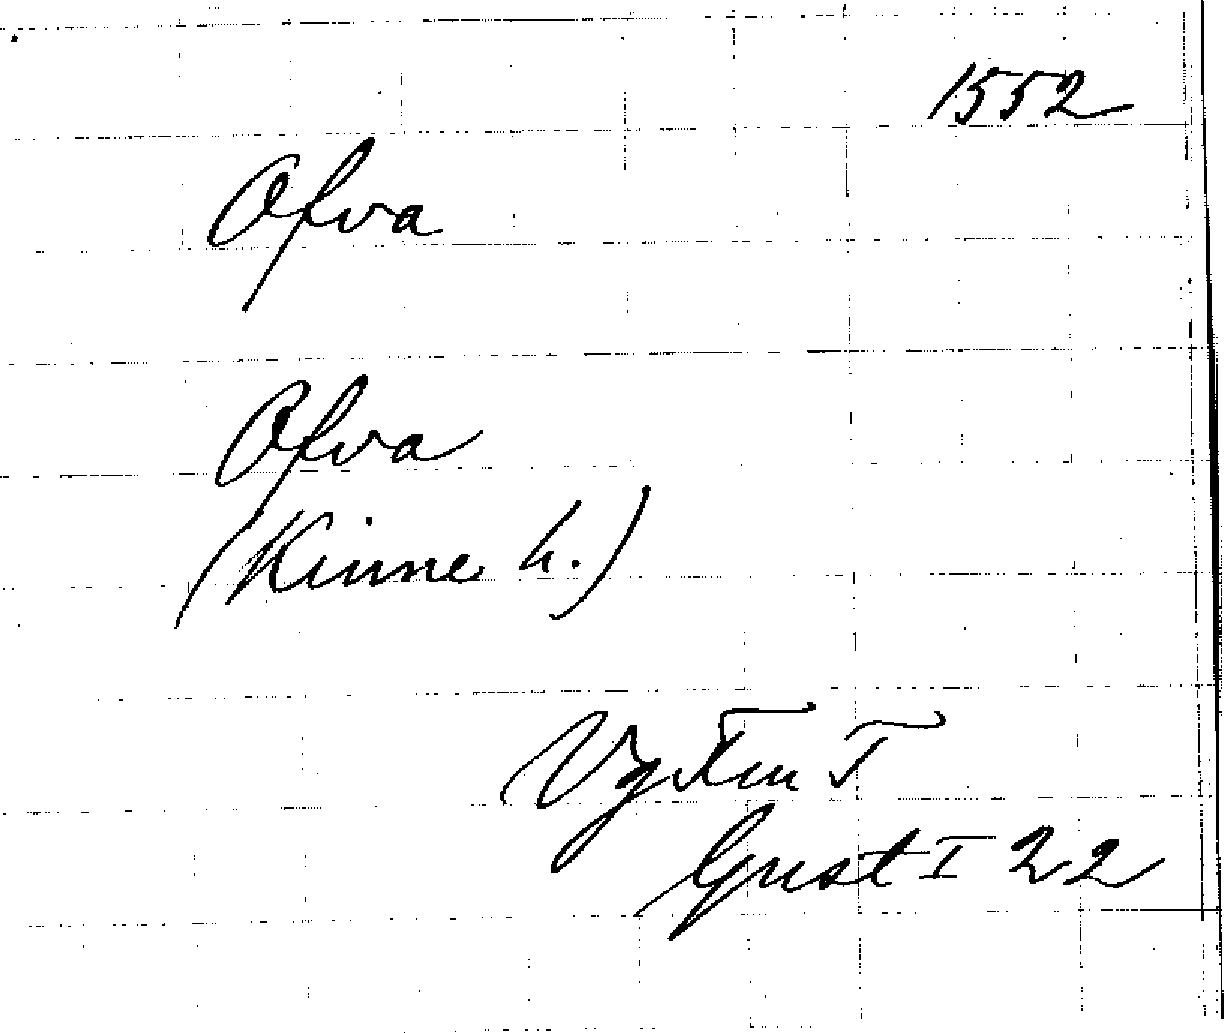 1552
Ofva
Ofva
(Kinne h.)
Vg Fru T
Gust I 22